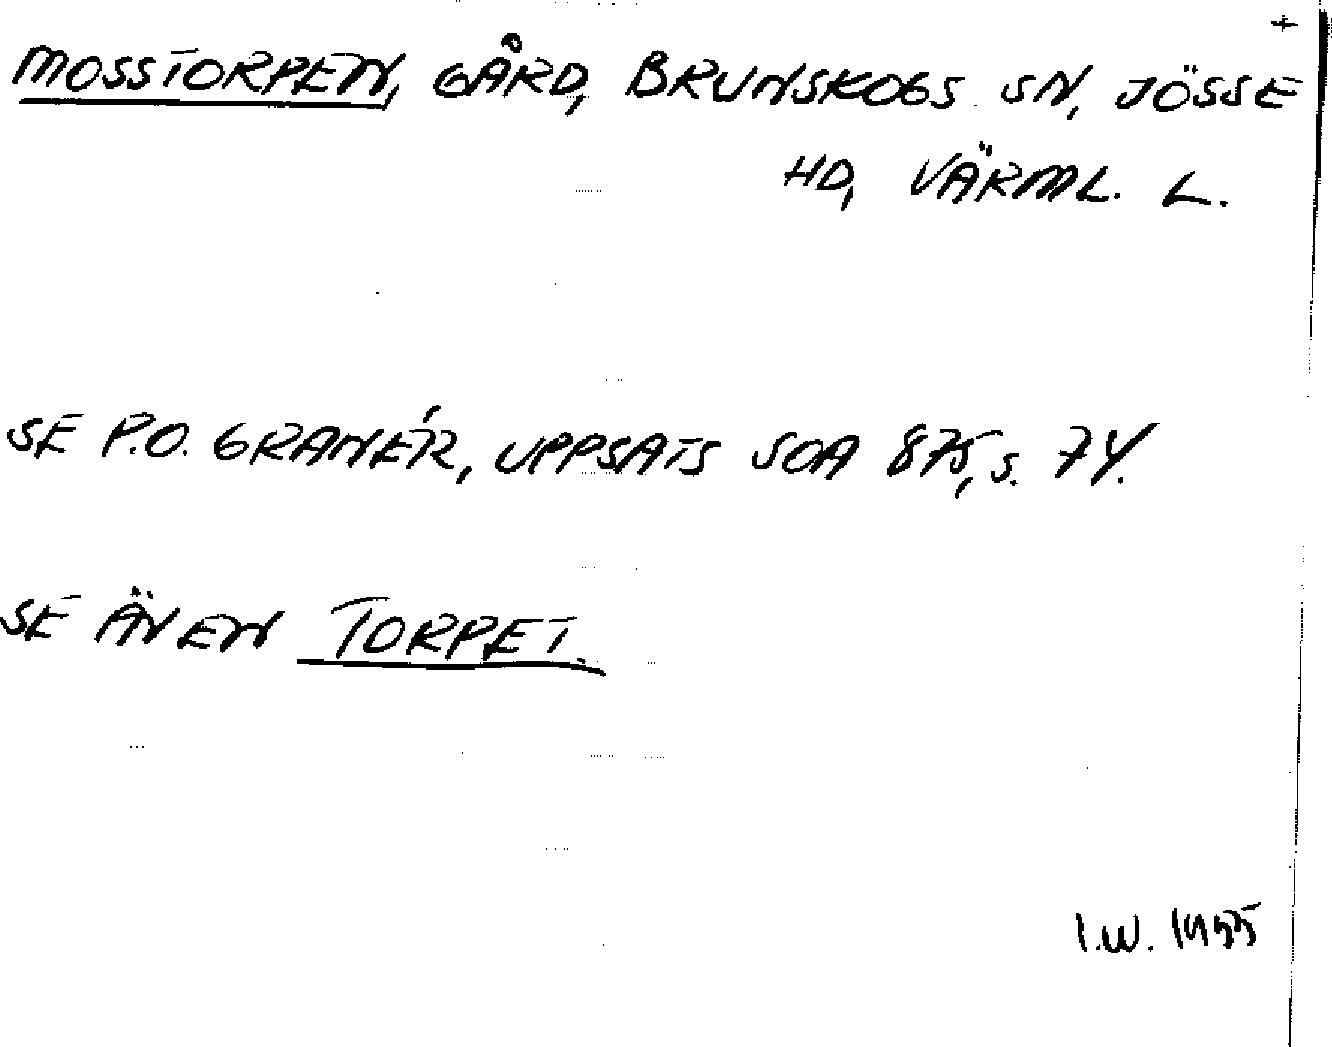 +
MOSSTORPEN, GÅRD, BRUNSKOGS SN, JÖSSE
HD, VÄRML. L.
SE P.O. GRANÉR, UPPSATS SOA 875, S. 74.
SE ÄVEN TORPET.
I.W. 1955